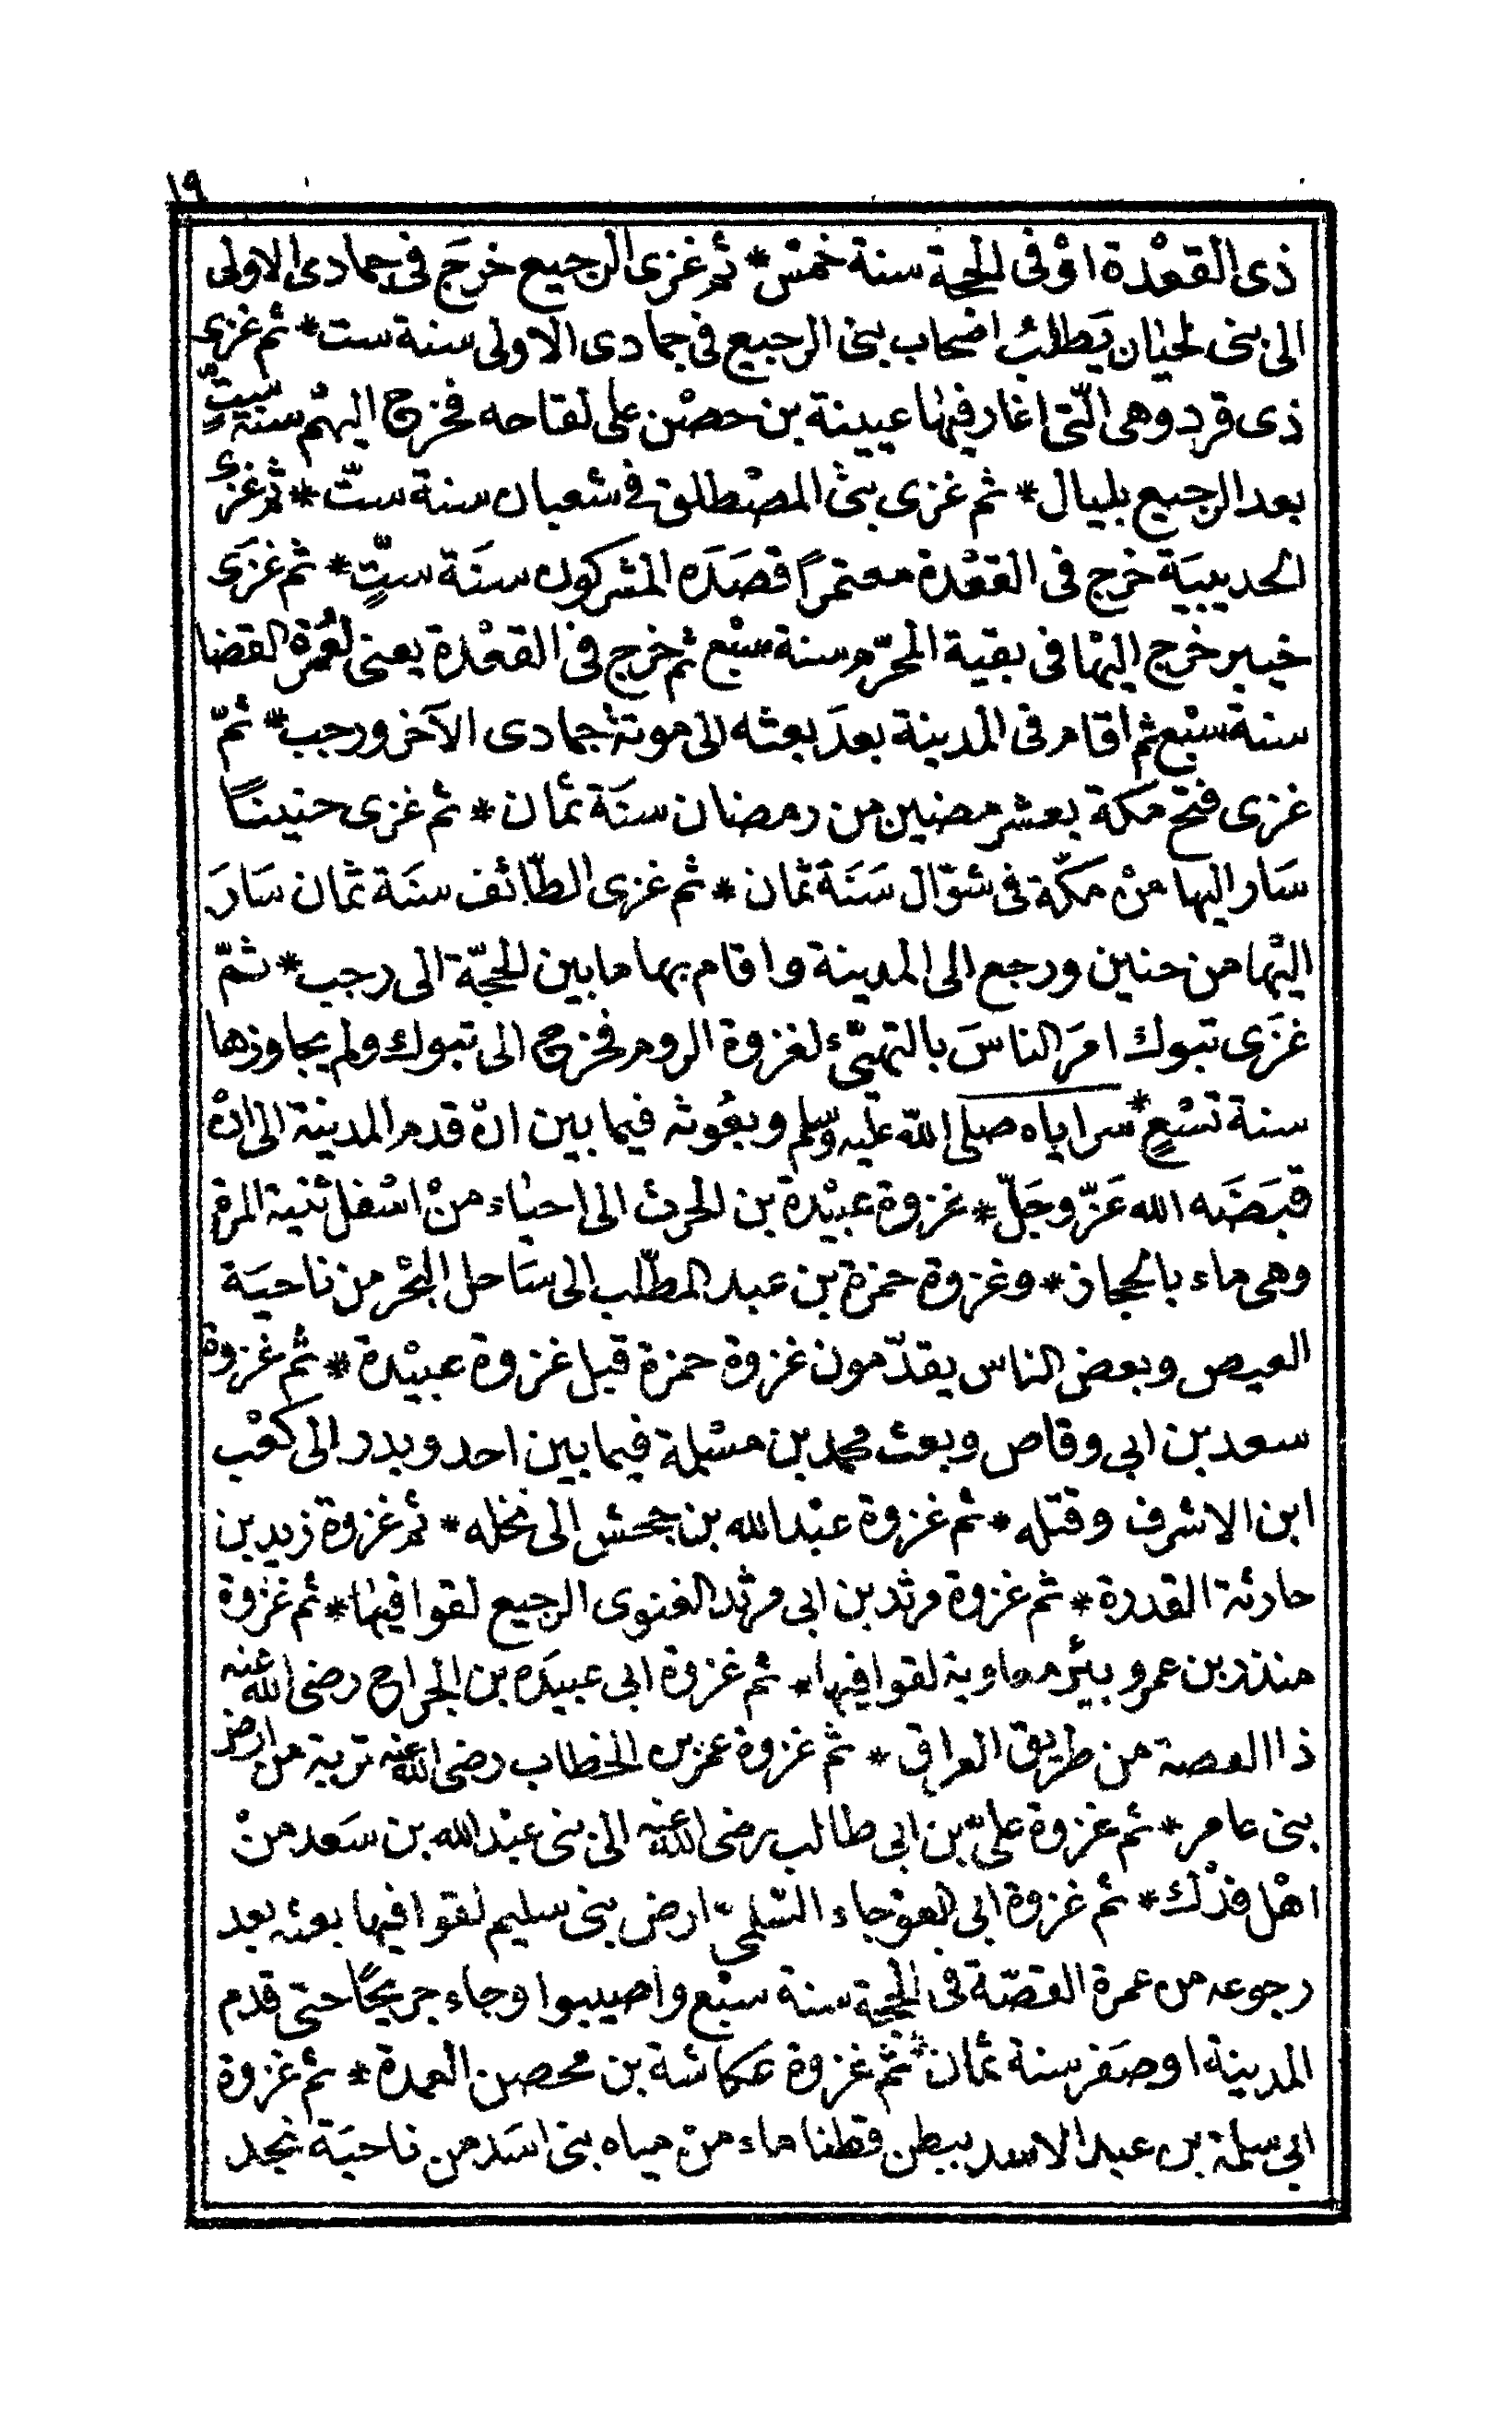 ١٩
ذى القعْدة اوْ فى الحجة سنة خمسْ * ثم غزى الرجيع خرجَ فى جمادى الاولى
الى بنى لحيٰان يَطلبُ اصْحاب بنى الرجيع فى جمادى الاولى سنة ست * ثم غزى
ذى قرد وهى الّتى اغار فيهٰا عيينة بن حصْن على لقاحه فخرج اليهْم سنة ستٍّ
بعد الرجيع بليال * ثم غزى بنى المصْطلق فى شعبان سنة ستّ * ثم غزى
الحديبيَة خرج فى القعْدة معتمرًا قصَدَه المشركون سنَة ستٍّ * ثم غزَى
خيبر خرج اليهٰا فى بقية المحرّم سنة سبْع ثم خرج فى القعْدة يعنى لعُمرة القضا
سنة سبْع ثم اقام فى المدينة بعدَ بعثه الى موتة جمادى الآخر ورجب * ثمّ
غزى فتح مكة بعشر مضين من رمضان سنَة ثمان * ثم غزى حنينًا
سَار اليها منْ مكّة فى شوّال سَنَة ثمان * ثم غزى الطّائف سنَة ثمان سَارَ
اليْها من حنين ورجع الى المدينة واقام بها ما بين الحجّة الى رجب * ثمّ
غزَى تبوك امَر الناسَ بالتهيّء لغزوة الروم فخرج الى تبوك ولم يجاوزها
سنة تسْعٍ * سراياه صلى الله عليه وسلم وبعُوثه فيما بين انْ قدم المدينة الى انْ
قبَضَه الله عَزّ وجَلّ * غزوة عبيْدة بن الحرث الى احيٰاء منْ اسْفل ثنية المرة
وهى ماء بالحجاز * وغزوة حمزة بن عبد المطّلب الى سَاحل البحْر من ناحيَة
العيص وبعض الناس يقدّمون غزوة حمزة قبل غزوة عبيْدة * ثم غزوة
سعد بن ابى وقاص وبعث محمد بن مسْلمة فيما بين احد وبدر الى كعْب
ابن الاشرف وقتله * ثم غزوة عبْد الله بن جحش الى نخله * ثم غزوة زيد بن
حارثة القددة * ثم غزوة مرثد بن ابى مرثد الغنوى الرجيع لقوا فيهٰا * ثم غزوة
منذر بن عمرو بئر معاوية لقوا فيها * ثم غزوة ابى عبيَده بن الجراح رضى الله عنه
ذا العصة من طريق العراق * ثم غزوة عمر بن الخطاب رضى الله عنه تربة من ارض
بنى عامر * ثم غزوة علىّ بن ابى طالب رضى الله عنه الى بنى عبْد الله بن سَعد منْ
اهْل فدْك * ثم غزوة ابى العوْجاء السّلمى ارض بنى سليم لقوا فيها بعثه بعد
رجوعه من عمرة القصّة فى الحجة سنة سبْع واصيبوا وجاء جريحًا حتى قدم
المدينة اوصَفر سنة ثمان * ثم غزوة عكاشة بن محصن العمدة * ثم غزوة
ابى سلمة بن عبد الاسد ببطن قطنا ماء منْ مياه بنى اسَد من ناحيَة نجد